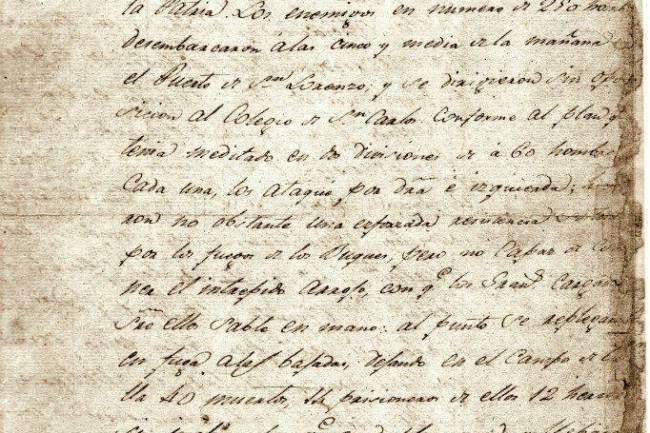 la Patria. Los enemigos en numero de 250 hom
desembarcaron á las cinco y media de la mañana
el Puerto de Sn Lorenzo, y se dirigieron sin opo
sicion al Colegio de Sn Carlos. Conforme al plan q
tenia meditado en dos divisiones de á 60 hombre
Cada una, los ataque por dra é izquierda;
ron no obstante una esforzada resistencia
por los fuegos de los Buques, pero no capaz de
ner el intrepido arrojo, con qe los Granos cargaron
sre ellos sable en mano: al punto se replegaron
en fuga a las bajadas, dejando en el Campo de
lla 40 muertos, 14 prisioneros de ellos 12 heri